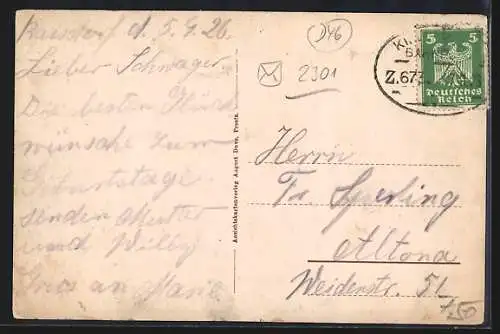 Raisdorf d. 5.9.26.
Lieber Schwager
Die besten Glück
wünsche zum
Geburtstage
senden Mutter
und Willy
Grus an Marie
Ansichtskartenverlag August Duve, Preetz.
D46
2301
5 5
Deutsches
Reich
Z.673
Herrn
Fr. Sperling
Altona
Weidenstr. 51
7,50